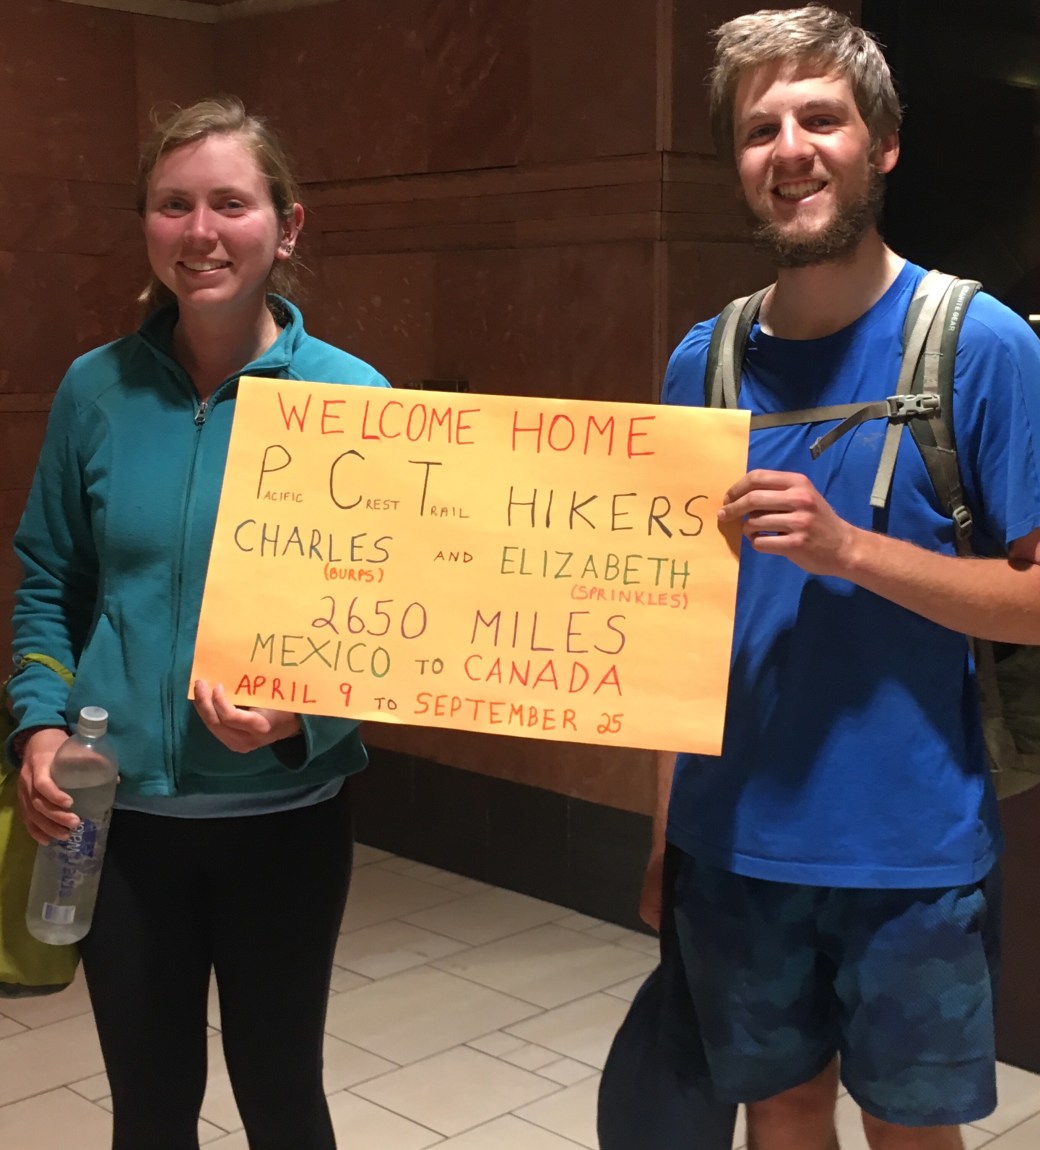 WELCOME HOME
PACIFIC CREST TRAIL HIKERS
CHARLES AND ELIZABETH
(BURPS) (SPRINKLES)
2650 MILES
MEXICO TO CANADA
APRIL 9 TO SEPTEMBER 25
GRANITE GEAR